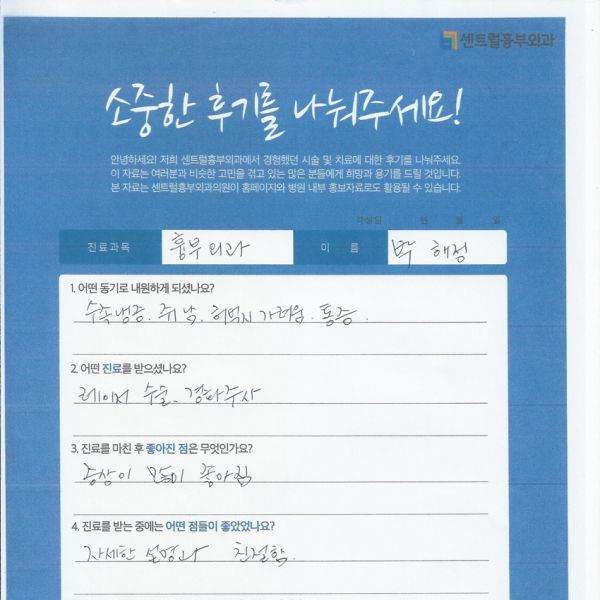 센트럴흉부외과
소중한 후기를 나눠주세요!
안녕하세요! 저희 센트럴흉부외과에서 경험했던 시술 및 치료에 대한 후기를 나눠주세요.
이 자료는 여러분과 비슷한 고민을 겪고 있는 많은 분들에게 희망과 용기를 드릴 것입니다.
본 자료는 센트럴흉부외과의원이 홈페이지와 병원 내부 홍보자료로도 활용될 수 있습니다.
작성일 년 월 일
진료과목 흉부외과 이 름 박 해정
1. 어떤 동기로 내원하게 되셨나요?
수족냉증. 쥐 남. 허벅지 가려움. 통증.
2. 어떤 진료를 받으셨나요?
레이저 수술. 경화주사
3. 진료를 마친 후 좋아진 점은 무엇인가요?
증상이 많이 좋아짐
4. 진료를 받는 중에는 어떤 점들이 좋았었나요?
자세한 설명과 친절함.